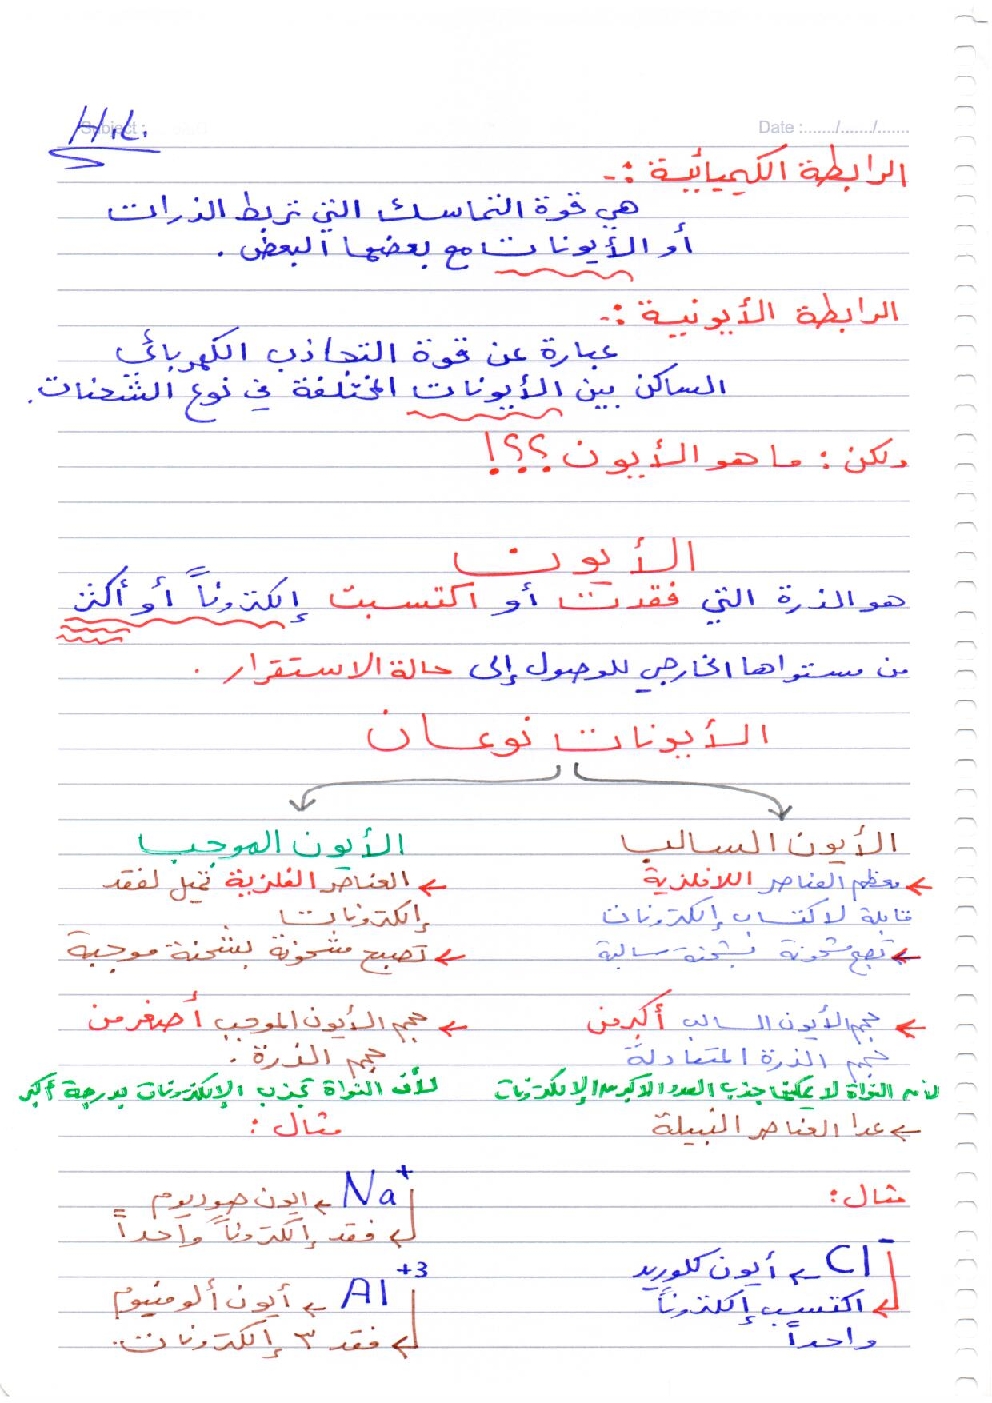 H.L.
Subject :
Date :....../....../......
الرابطة الكيميائية :-
هي قوة التماسك التي تربط الذرات
أو الأيونات مع بعضها البعض .
الرابطة الأيونية :-
عبارة عن قوة التجاذب الكهربائي
الساكن بين الأيونات المختلفة في نوع الشحنات .
ولكن : ما هو الأيون ؟؟؟!
الأيون
هو الذرة التي فقدت أو اكتسبت إلكتروناً أو أكثر
من مستواها الخارجي للوصول إلى حالة الاستقرار .
الأيونات نوعان
الأيون السالب
← معظم العناصر اللافلزية
قابلة لاكتساب إلكترونات
← تصبح مشحونة بشحنة سالبة
← حجم الأيون السالب أكبر من
حجم الذرة المتعادلة
لأن النواة لا يمكنها جذب العدد الأكبر من الإلكترونات
← عدا العناصر النبيلة
مثال :
Cl- ← أيون كلوريد
← اكتسب إلكتروناً
واحداً
الأيون الموجب
← العناصر الفلزية تميل لفقد
إلكترونات
← تصبح مشحونة بشحنة موجبة
← حجم الأيون الموجب أصغر من
حجم الذرة .
لأن النواة تجذب الإلكترونات بدرجة أكبر
مثال :
Na+ ← ايون صوديوم
← فقد إلكتروناً واحداً
Al+3 ← أيون ألومنيوم
← فقد ٣ إلكترونات .